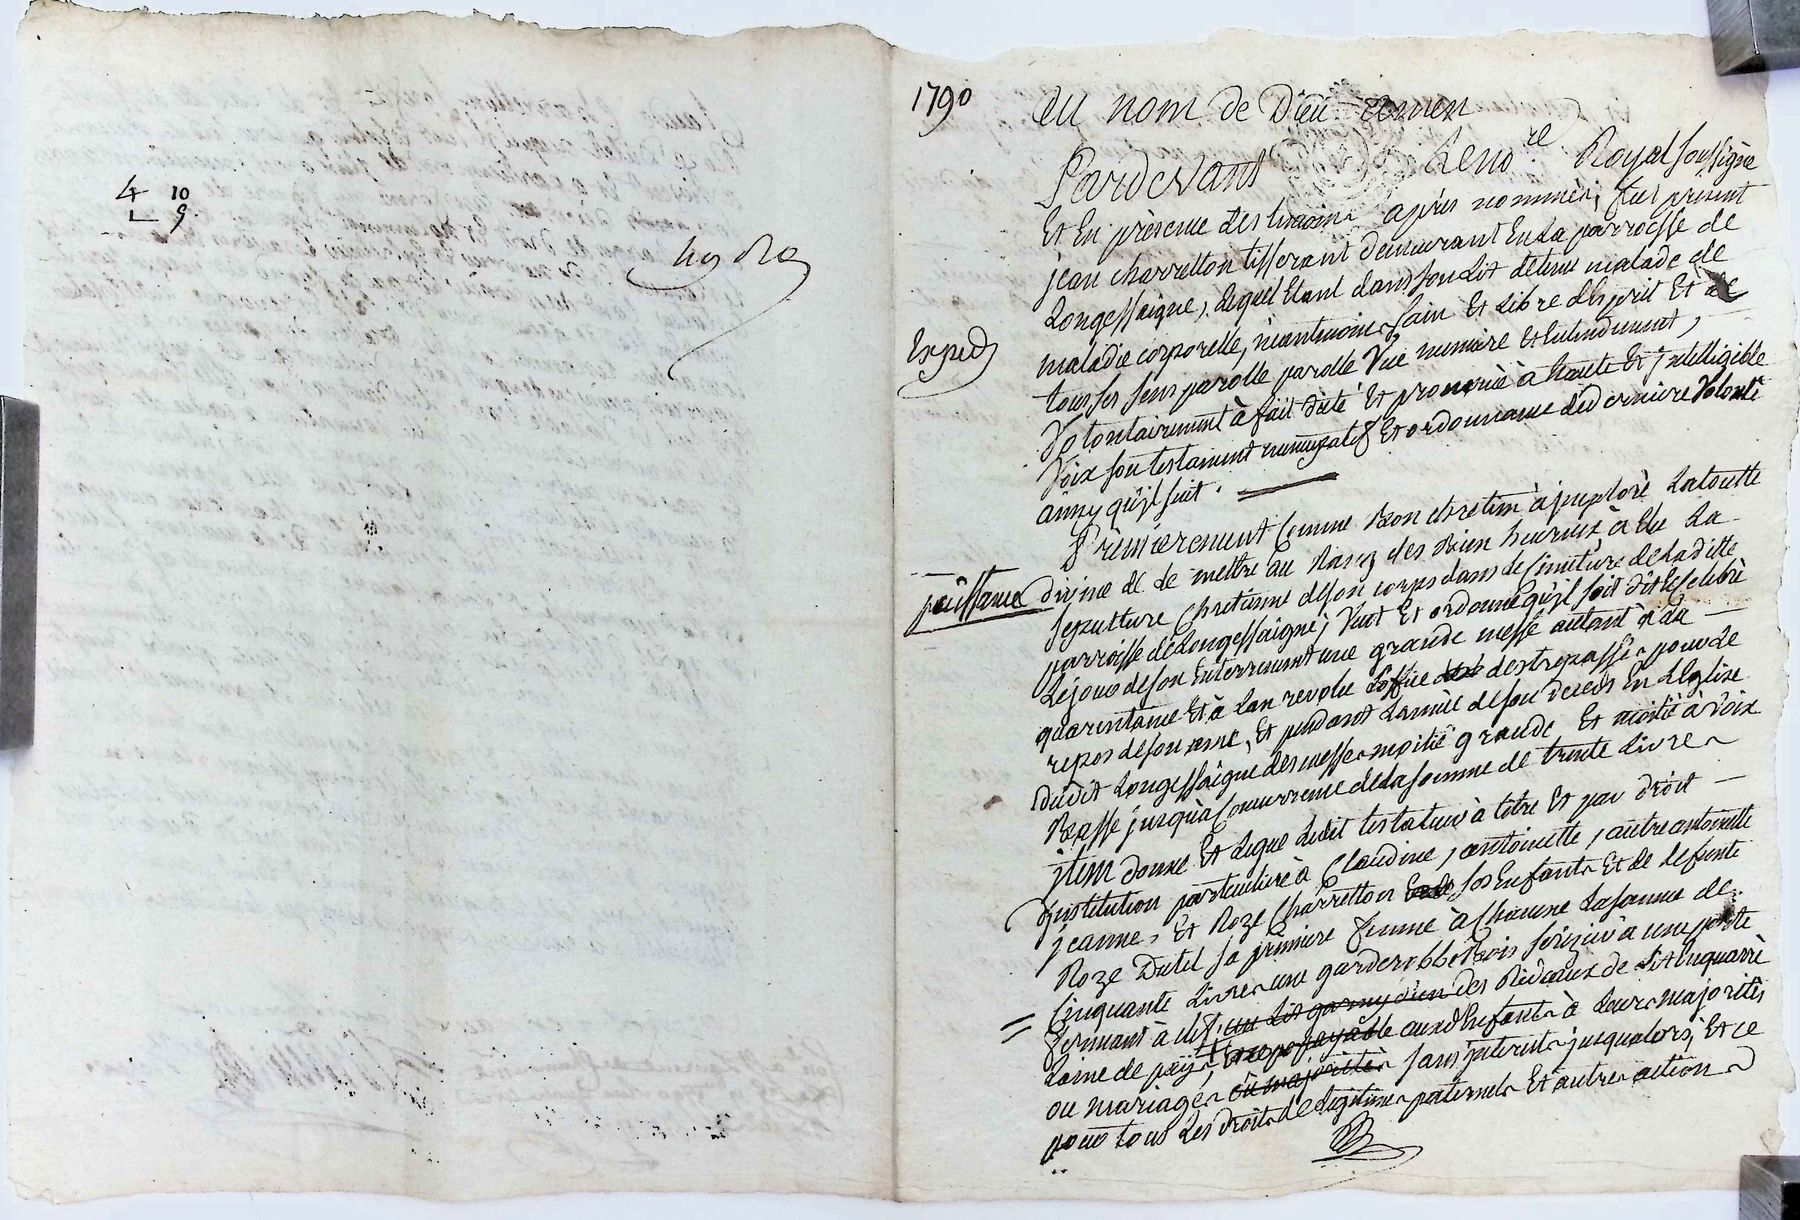 4 10
L 9.
1790
Au nom de Dieu amen
Pardevant Le no.re Royal soussigné
Et En présence des témoins après nommés, fut présent
jean charretton tisserant demeurant En La parroisse de
Longessaigne, Lequel Etant dans son Lit détenu malade de
maladie corporelle, néantmoins sain Et Libre d'Esprit Et de
Exped
tous ses sens parolle parolle Vüe memoire Et Entendement,
Volontairement à fait dicté Et prononcé à haute Et jntelligible
Voix son testament nuncupatif Et ordonnance de derniere Volonté
ainsy qu'jl suit.
Premierement Comme Bon chretien à jmploré La toutte
puissance divine de Le mettre au Rang des Bien heureux à Elu La
sepulture Chretienne de son corps dans Le Cimetiere de La ditte
parroisse de Longessaigne, Veut Et ordonne qu'jl soit dit Et Celebré
Le jour de son Enterrement une grande messe autant à La
quarentaine Et à L'an revolu L'office des trepassés pour Le
repos de son ame, Et pendant L'année de son deceds En L'Eglise
dudit Longessaigne des messes moitié grande Et moitié à voix
Basse jusqu'à Concurrence de La somme de trente Livres
jtem donne Et Legue Ledit testateur à titre Et par droit
d'jnstitution particuliere à Claudine, antoinette, autre antoinette
jeanne, Et Roze Charretton ses Enfants Et de deffunte
Roze Dutel sa premiere femme à Chacune La somme de
Cinquante Livres une garderobbe Bois sapin à une porte
fermant à clef, un Lit garny d'un des Rideaux de Lit En quarré
Laine de païs, payable auxd Enfants à Leurs majorités
ou mariages ou majorités sans jnterests jusqu'alors, Et ce
pour tous Les droits de Legitimes paternels Et autres actions